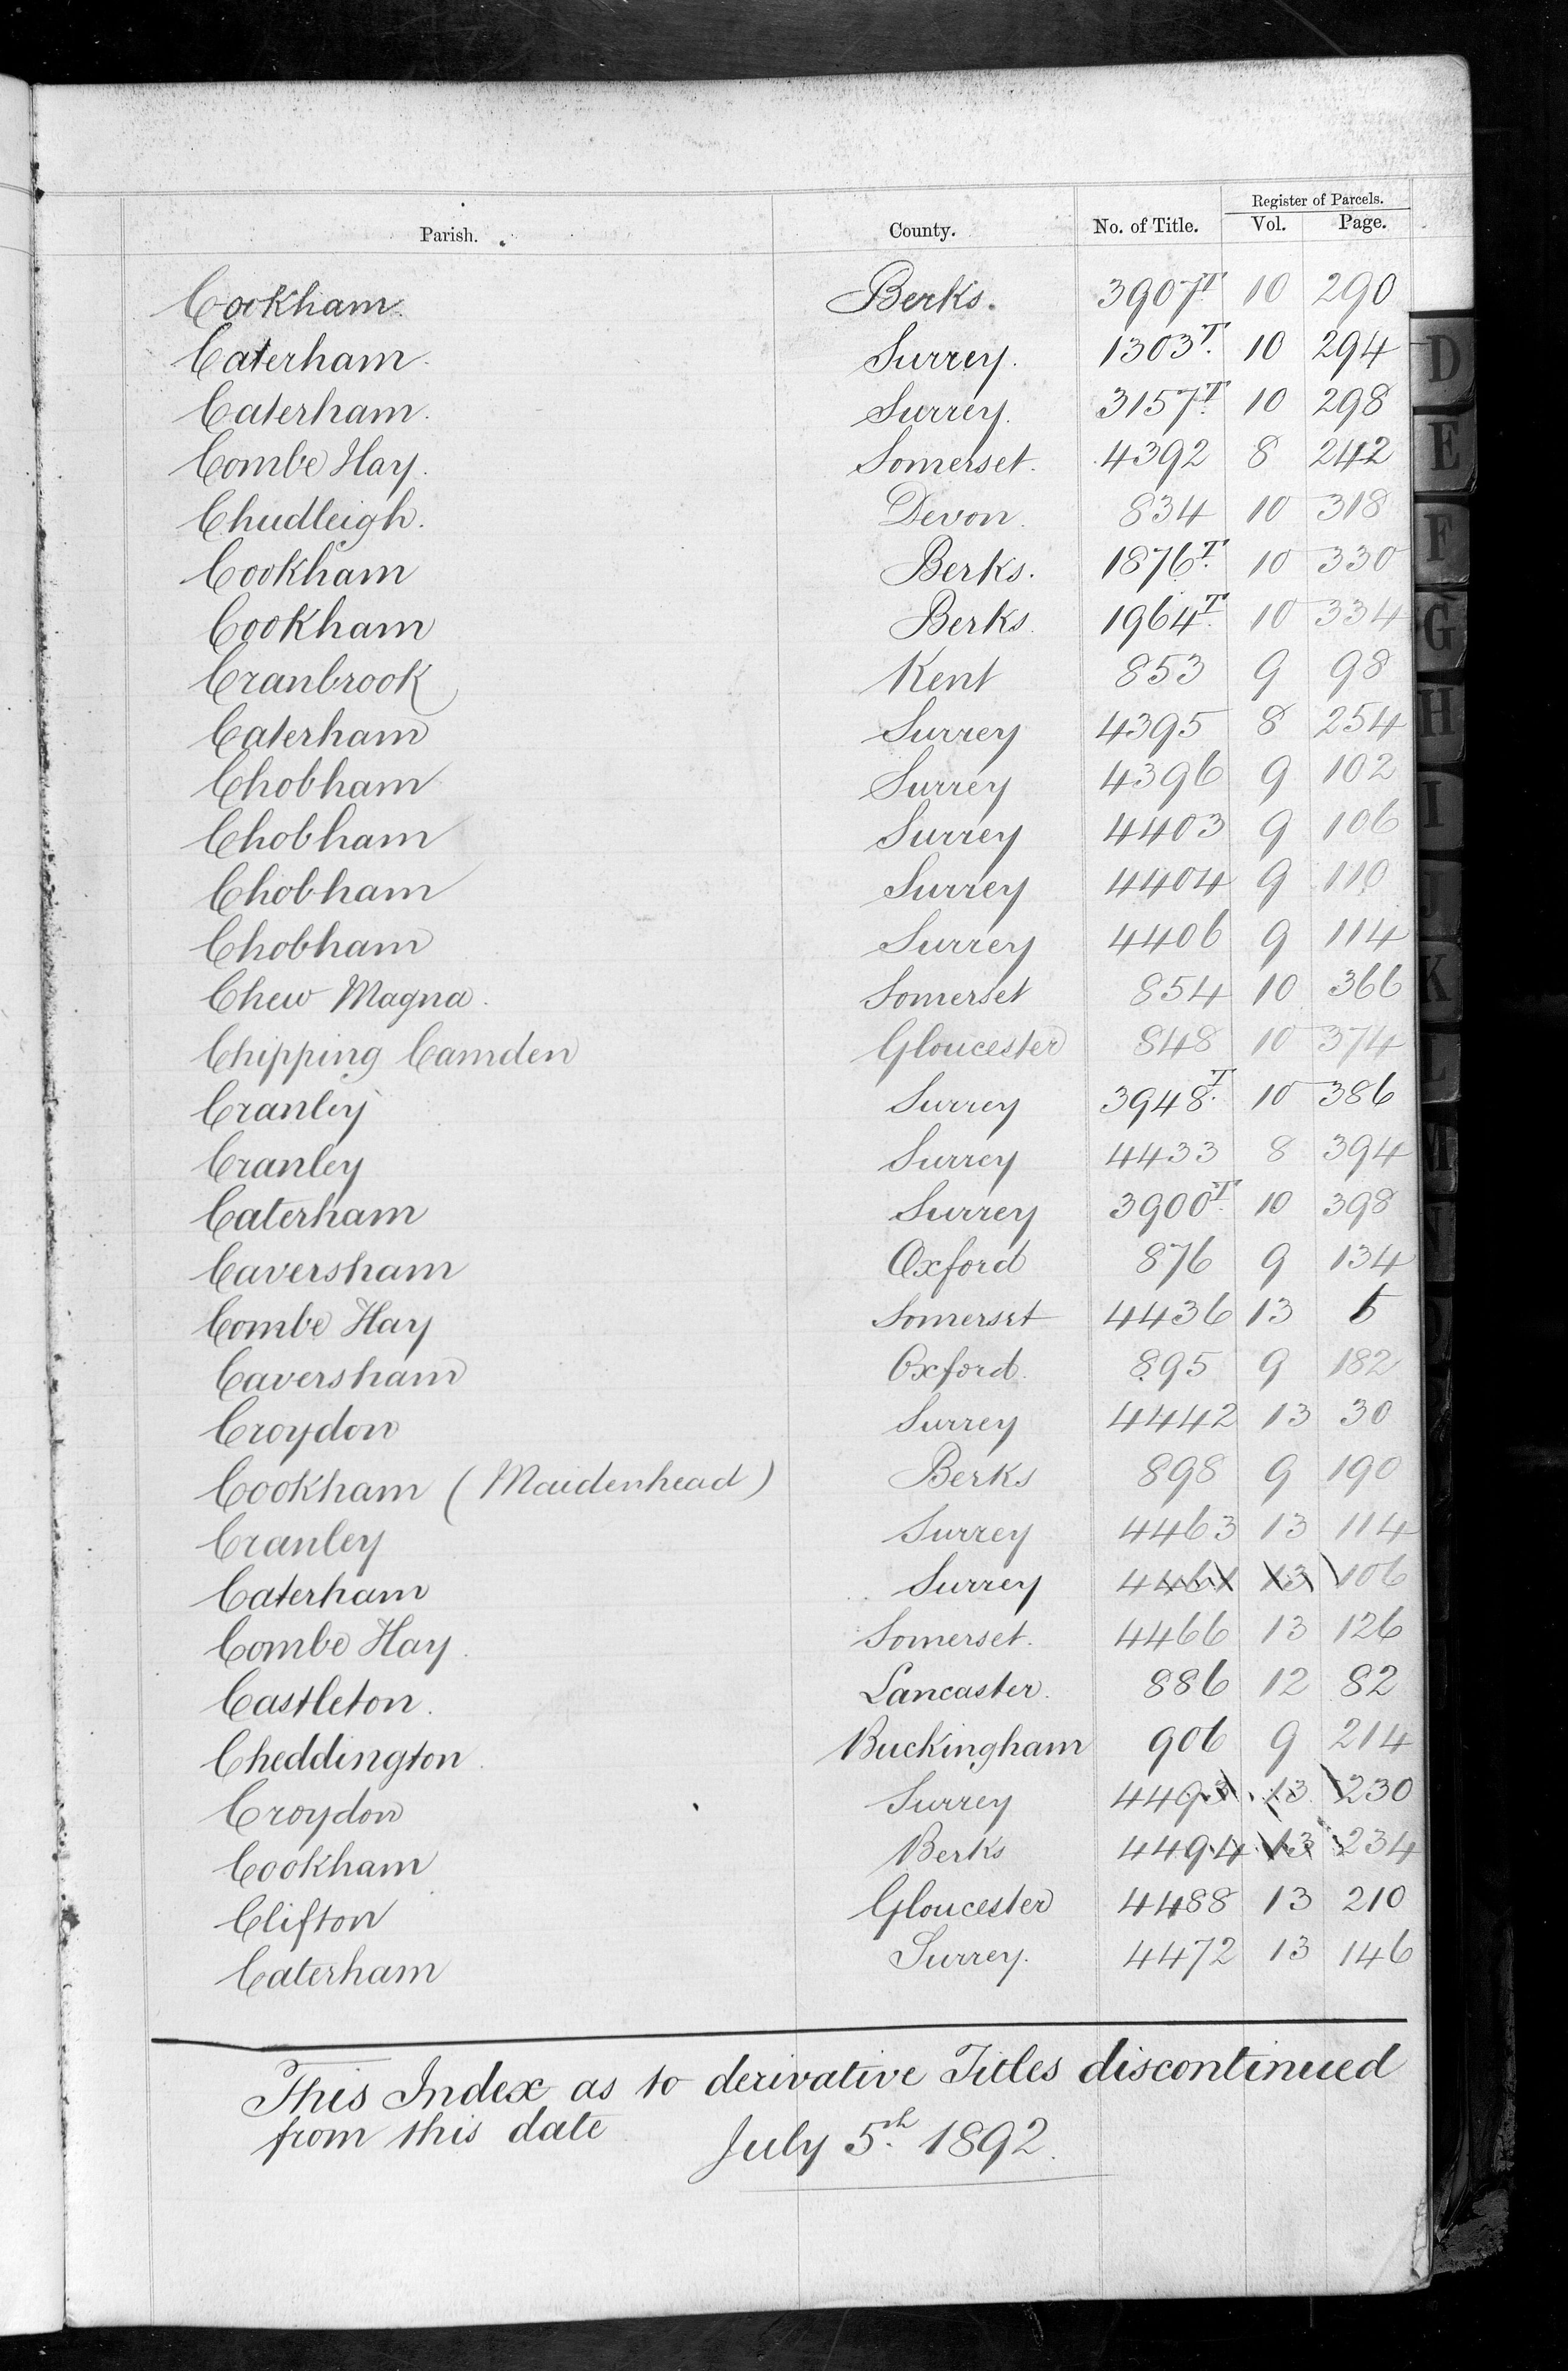 Register of Parcels.
Parish. County. No. of Title. Vol. Page.
Cookham. Berks. 3907T. 10 290
Caterham. Surrey. 1303T. 10 294
Caterham. Surrey. 3157T. 10 298
Combe Hay. Somerset. 4392 8 242
Chudleigh. Devon. 834 10 318
Cookham Berks. 1876T. 10 330
Cookham Berks. 1964T. 10 334
Cranbrook Kent 853 9 98
Caterham Surrey 4395 8 254
Chobham Surrey 4396 9 102
Chobham Surrey 4403 9 106
Chobham Surrey 4404 9 110
Chobham Surrey 4406 9 114
Chew Magna. Somerset 854 10 366
Chipping Camden Gloucester 848 10 374
Cranley Surrey 3948T. 10 386
Cranley Surrey 4433 8 394
Caterham Surrey 3900T. 10 398
Caversham Oxford 876 9 134
Combe Hay Somerset 4436 13
Caversham Oxford. 895 9 182
Croydon Surrey 4442 13 30
Cookham (Maidenhead) Berks 898 9 190
Cranley Surrey 4463 13 114
Caterham Surrey 4461 13 106
Combe Hay. Somerset. 4466 13 126
Castleton. Lancaster. 886 12 82
Cheddington. Buckingham 906 9 214
Croydon Surrey 4493 13 230
Cookham Berks 4494 13 234
Clifton Gloucester 4488 13 210
Caterham Surrey. 4472 13 146
This Index as to derivative Titles discontinued
from this date July 5th. 1892.
D
E
F
G
H
I
J
K
L
M
N